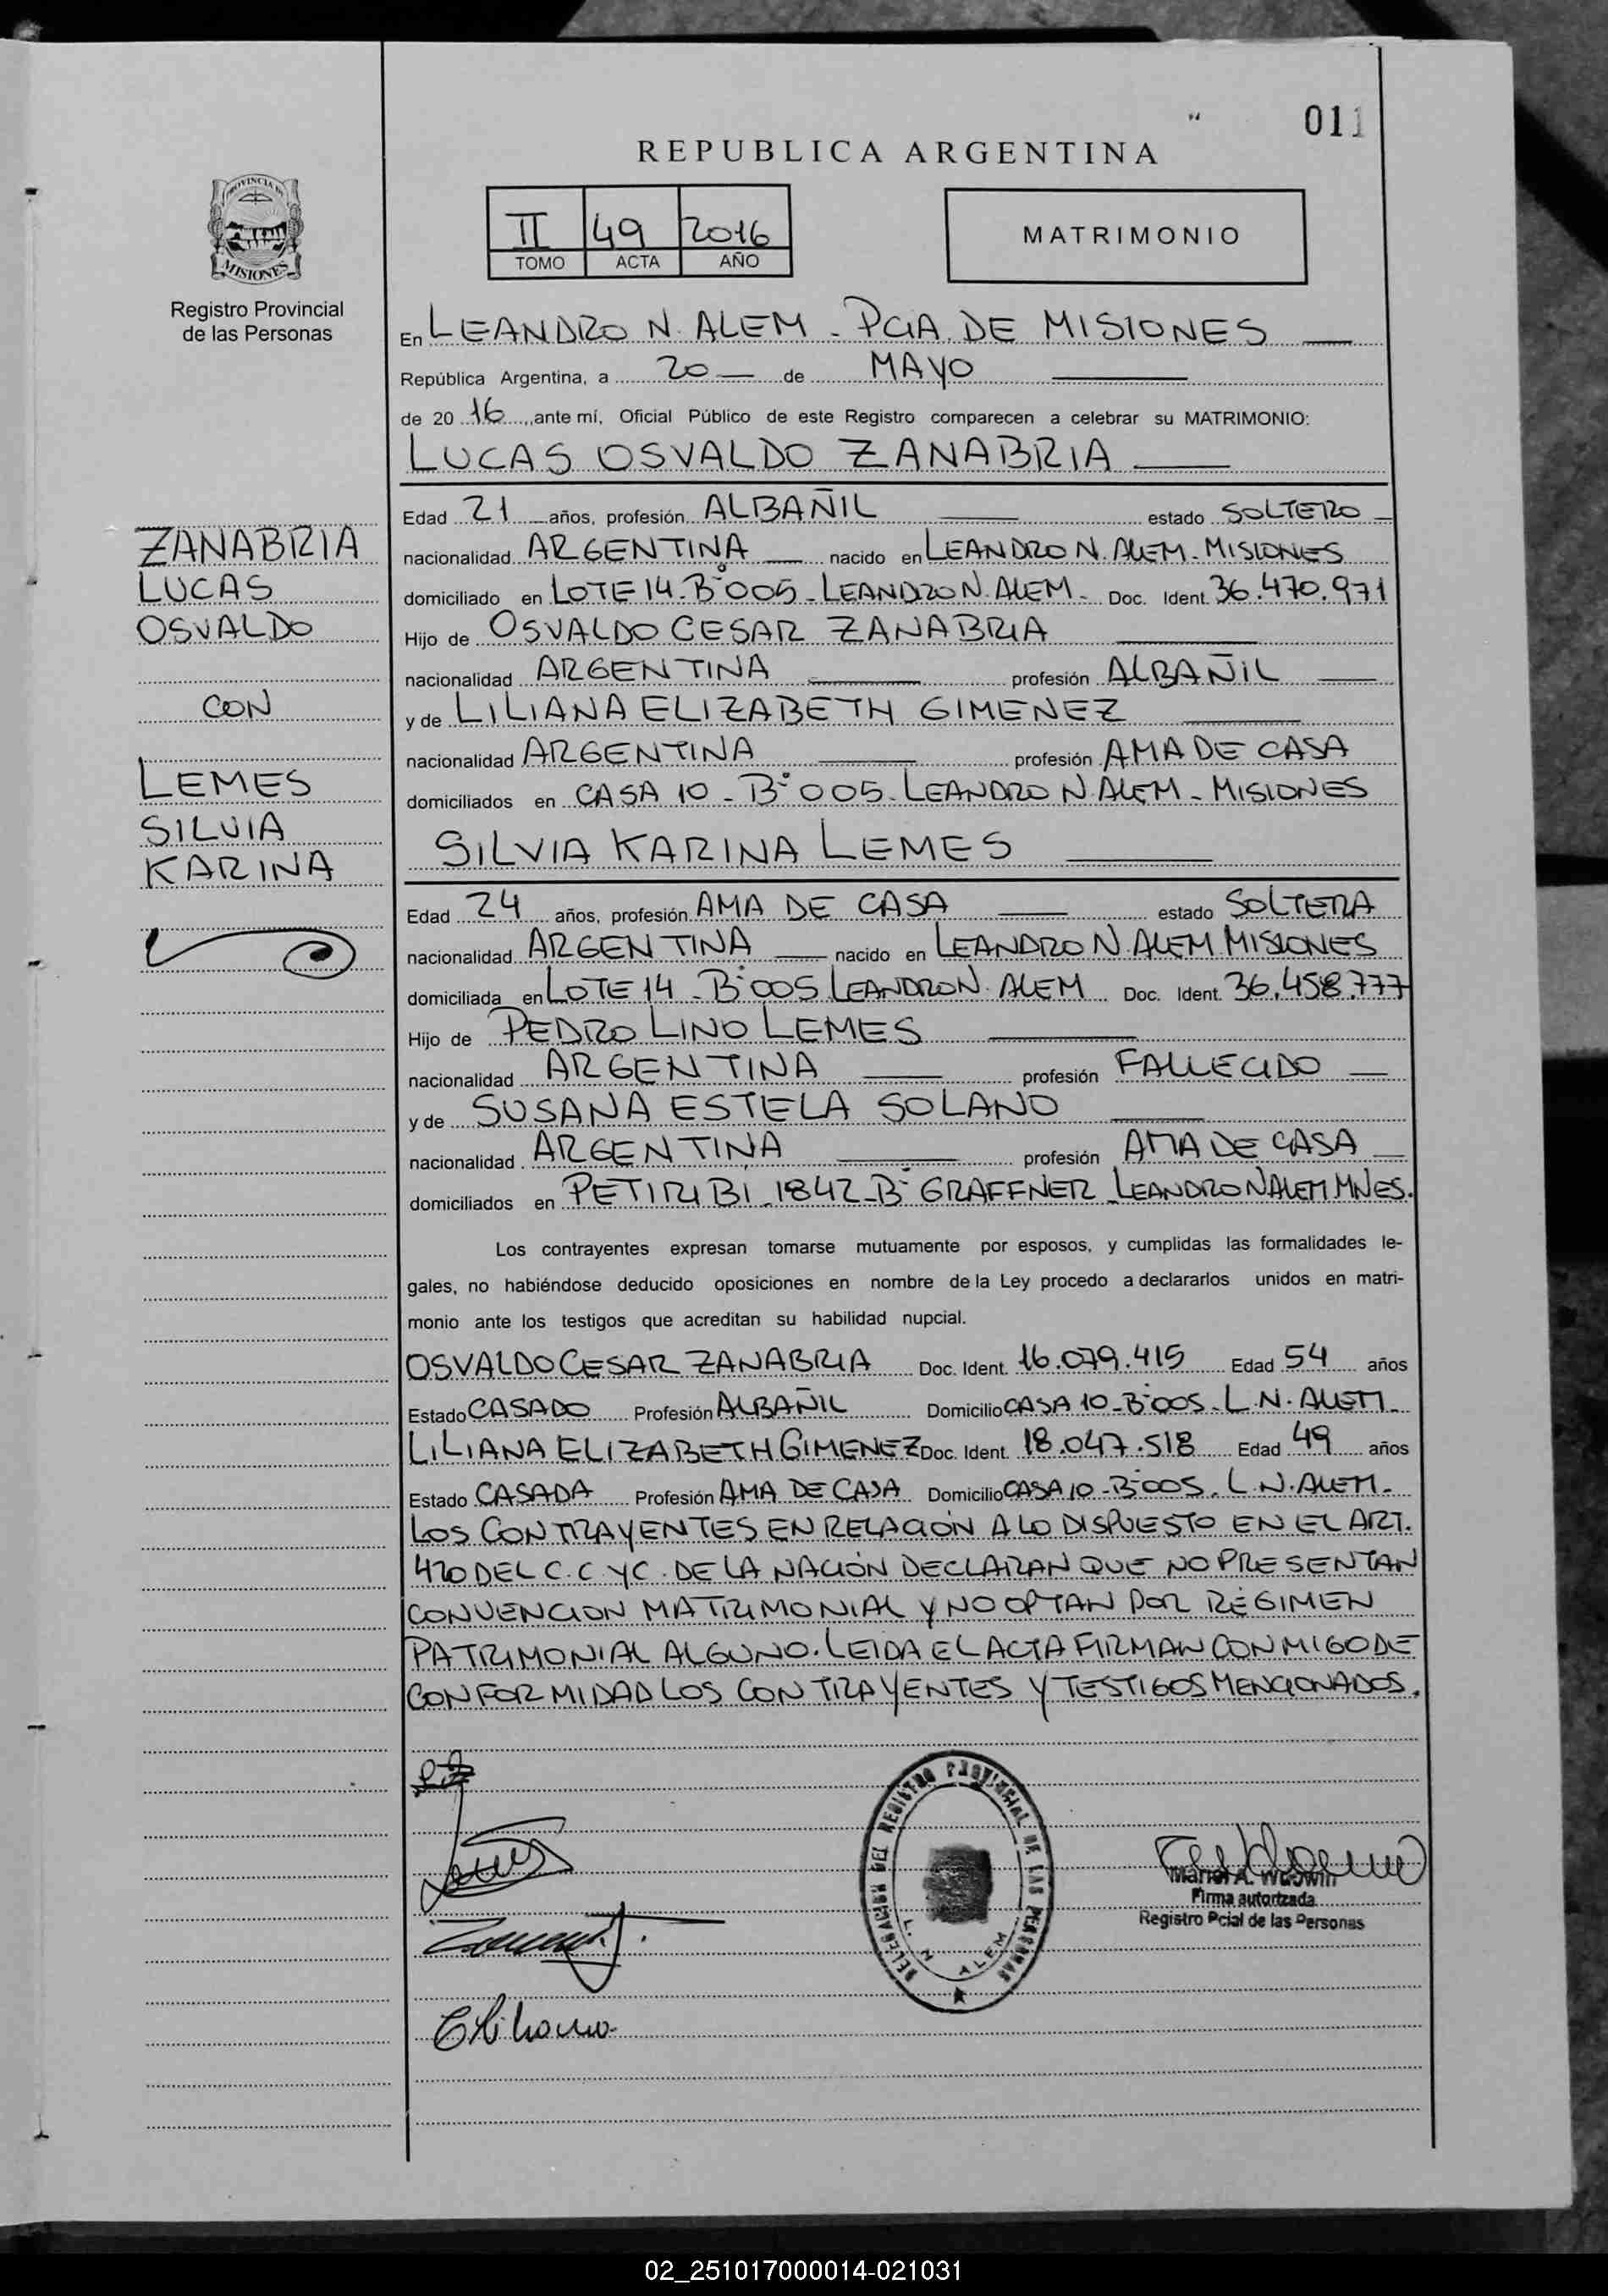 011
REPUBLICA ARGENTINA
PROVINCIA DE
MISIONES
Registro Provincial
de las Personas
II 49 2016
TOMO ACTA AÑO
MATRIMONIO
En LEANDRO N. ALEM - PCIA. DE MISIONES
República Argentina, a 20 de MAYO
de 20 16, ante mí, Oficial Público de este Registro comparecen a celebrar su MATRIMONIO:
LUCAS OSVALDO ZANABRIA
ZANABRIA
LUCAS
OSVALDO
CON
LEMES
SILVIA
KARINA
Edad 21 años, profesión ALBAÑIL estado SOLTERO
nacionalidad ARGENTINA nacido en LEANDRO N. ALEM - MISIONES
domiciliado en LOTE 14 - B° 005 - LEANDRO N. ALEM - Doc. Ident. 36.470.971
Hijo de OSVALDO CESAR ZANABRIA
nacionalidad ARGENTINA profesión ALBAÑIL
y de LILIANA ELIZABETH GIMENEZ
nacionalidad ARGENTINA profesión AMA DE CASA
domiciliados en CASA 10 - B° 005 - LEANDRO N. ALEM - MISIONES
SILVIA KARINA LEMES
Edad 24 años, profesión AMA DE CASA estado SOLTERA
nacionalidad ARGENTINA nacido en LEANDRO N. ALEM MISIONES
domiciliada en LOTE 14 - B° 005 LEANDRO N. ALEM Doc. Ident. 36.458.777
Hijo de PEDRO LINO LEMES
nacionalidad ARGENTINA profesión FALLECIDO
y de SUSANA ESTELA SOLANO
nacionalidad ARGENTINA profesión AMA DE CASA
domiciliados en PETIRIBI 1842 - B° GRAFFNER - LEANDRO N ALEM MNES.
Los contrayentes expresan tomarse mutuamente por esposos, y cumplidas las formalidades le-
gales, no habiéndose deducido oposiciones en nombre de la Ley procedo a declararlos unidos en matri-
monio ante los testigos que acreditan su habilidad nupcial.
OSVALDO CESAR ZANABRIA Doc. Ident. 16.079.415 Edad 54 años
Estado CASADO Profesión ALBAÑIL Domicilio CASA 10 - B° 005 - L.N. ALEM
LILIANA ELIZABETH GIMENEZ Doc. Ident. 18.047.518 Edad 49 años
Estado CASADA Profesión AMA DE CASA Domicilio CASA 10 - B° 005 - L.N. ALEM -
LOS CONTRAYENTES EN RELACIÓN A LO DISPUESTO EN EL ART.
420 DEL C.C Y C. DE LA NACIÓN DECLARAN QUE NO PRESENTAN
CONVENCION MATRIMONIAL Y NO OPTAN POR RÉGIMEN
PATRIMONIAL ALGUNO. LEIDA EL ACTA FIRMAN CONMIGO DE
CONFORMIDAD LOS CONTRAYENTES Y TESTIGOS MENCIONADOS.
DELEGACION DEL REGISTRO PROVINCIAL DE LAS PERSONAS
L. N ALEM
Firma autorizada
Registro Pcial de las Personas
02_251017000014-021031